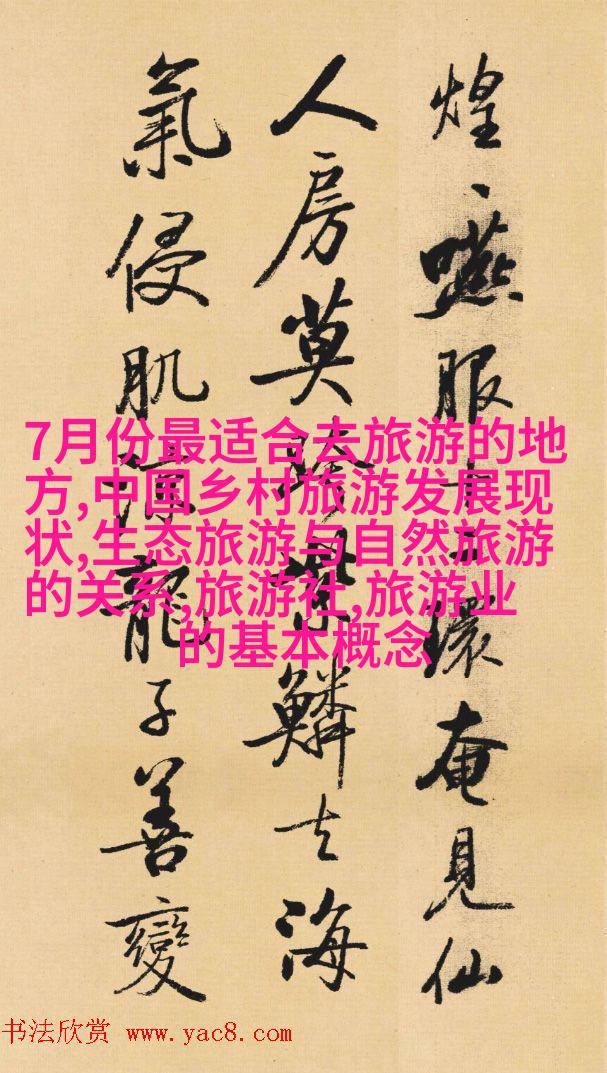 煌、嚥服十二環奄見仙
人房莫跨紫鱗去海
氣侵肌涼龍子善變
7月份最适合去旅游的地
方,中国乡村旅游发展现
状,生态旅游与自然旅游
的关系,旅游社,旅游业
的基本概念
书法欣赏 www.yac8.com